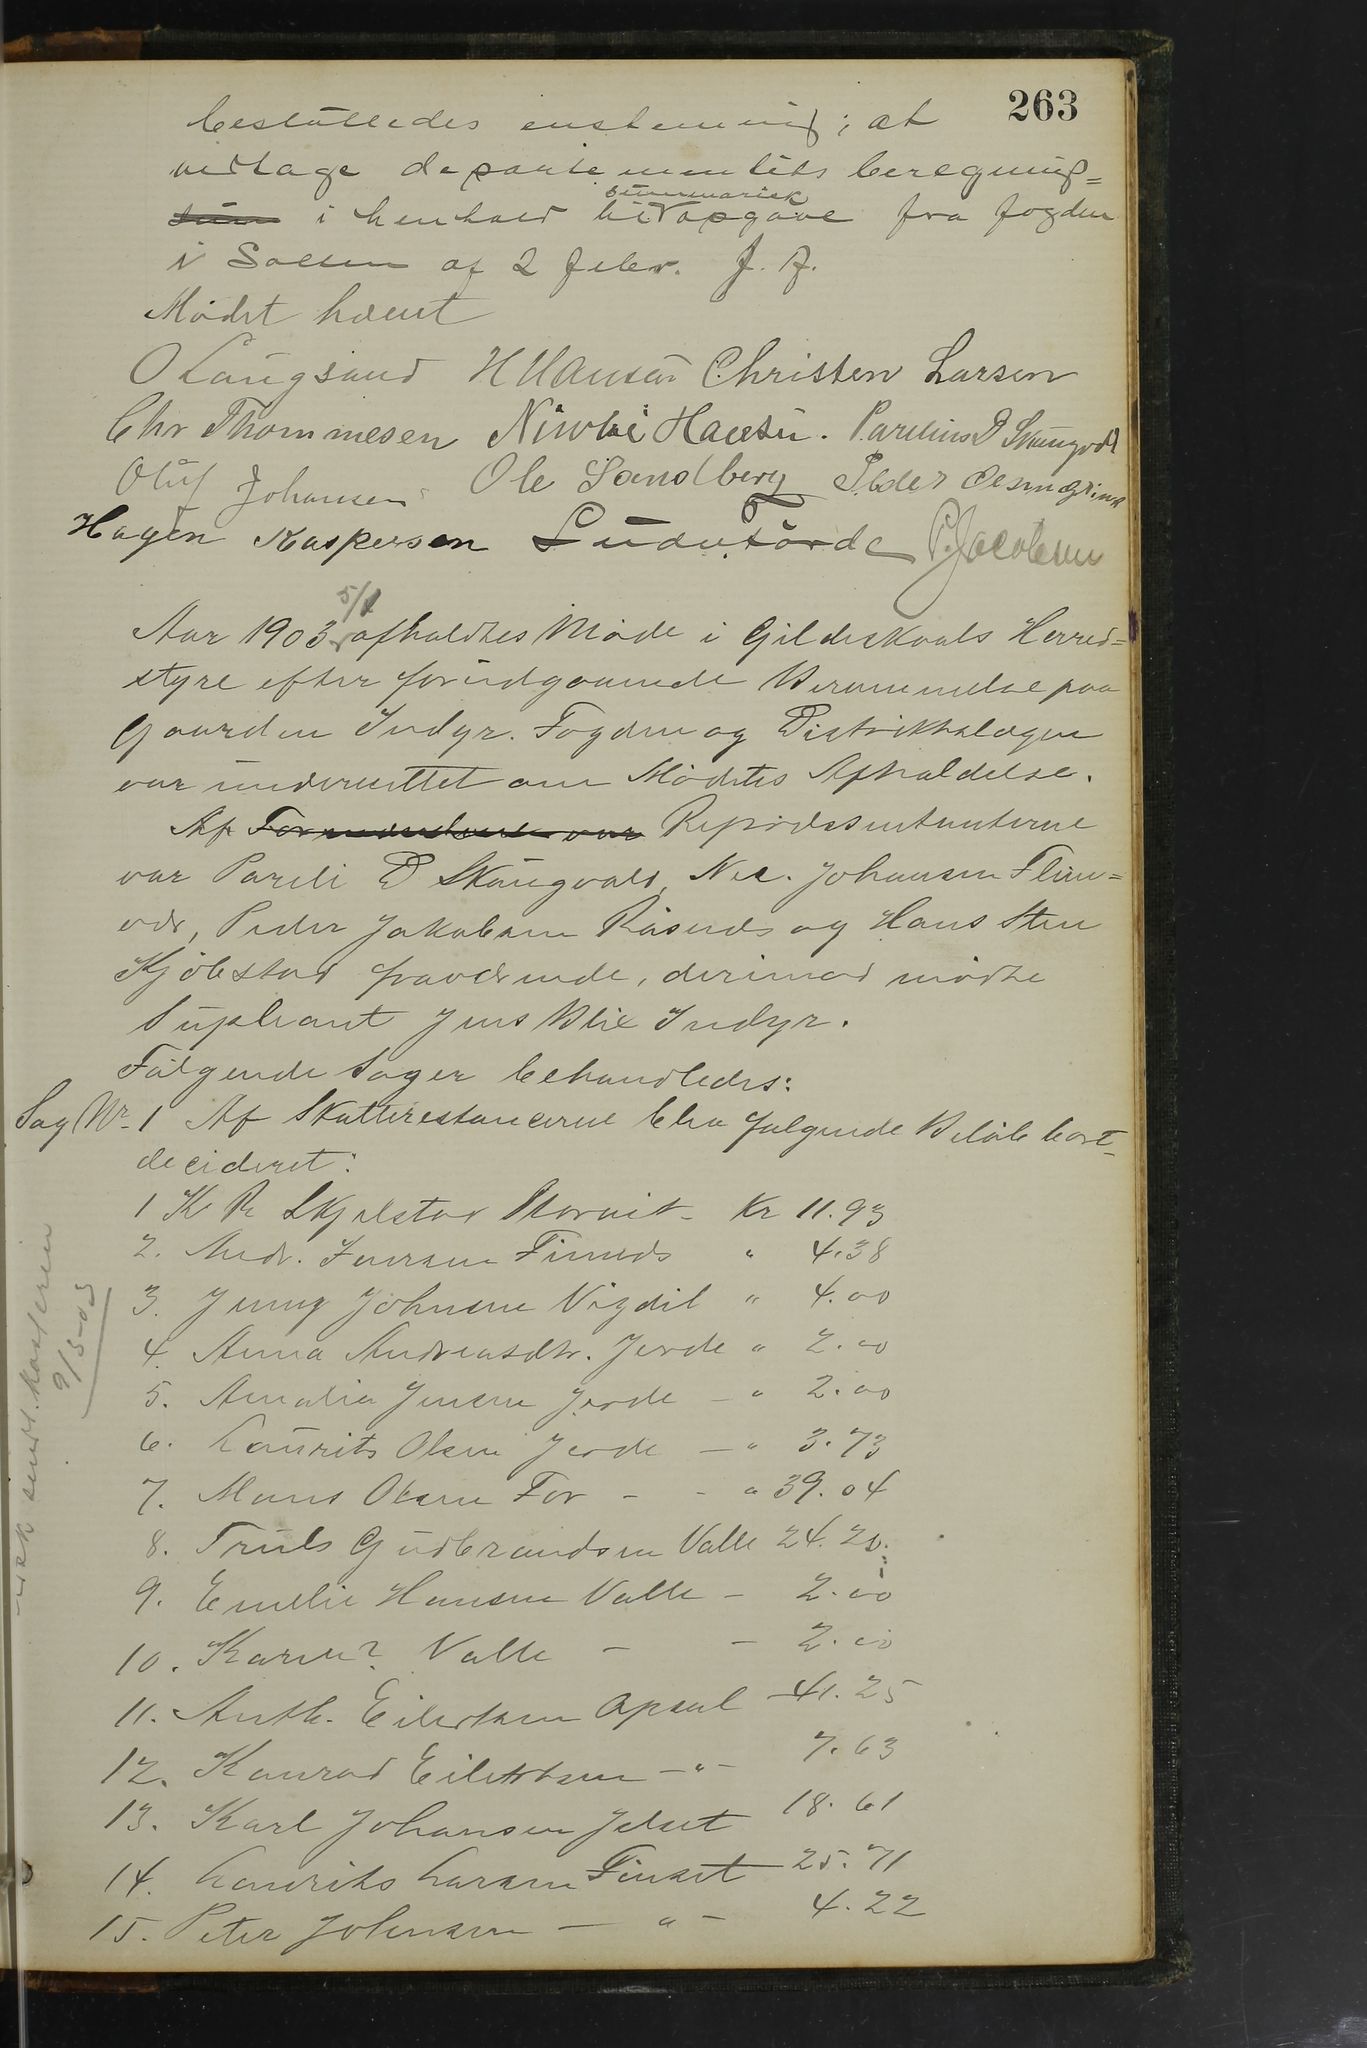 263
besluttedes enstemmig; at
vedtage departementets beregning=
i henhold til summarisk opgave fra fogden
i Salten af 2 febr. d. A.
Mødet hævet
O Langsand H Hansen Christen Larsen
Chr Thommesen Nikolai Hansen. Parelius D Skaugvold
Oluf Johansen Ole Sandberg Peder
Hagen Kaspersen P. Jacobsen
Aar 1903 5/1 afholdtes Møde i Gildeskaals Herred=
styre efter forudgaaende Berammelse paa
Gaarden Indyr. Fogden og Distriktslægen
var underrettet om Mødets Afholdelse.
Af Repræsentanterne
var Pareli D Skaugvold, Nic. Johansen Flein=
vær, Peder Jakobsen Råsnes og Hans Sten
Kjøbstad fraværende, derimod mødte
Supleant Jens Blix Indyr.
Følgende Sager behandledes:
Sag Nr. 1 Af Skatterestancerne blev følgende Beløb bort-
decideret:
1 K R Skjelstad Storvik - Kr 11.93
2. Andr. Iversen Finnes " 4.38
3. Jenny Johnsen Vigdel " 4.00
4. Anna Andreasdtr. Jerde " 2.00
5. Amalia Jensen Jerde - " 2.00
6. Laurits Olsen Jerde - " 3.73
7. Mons Olsen For - - " 39.04
8. Truls Gudbrandsen Valle 24.20.
9. Emelie Hansen Valle - 2.00
10. Karen? Valle - - 2.00
11. Anth. Eilertsen Opsal - 41.25
12. Konrad Eilertsen - " - 7.63
13. Karl Johansen Jelset 18.61
14. Laurits Larsen Finset 25.71
15. Peter Johnsen - " - 4.22
sendt Kasseren
9/5-03